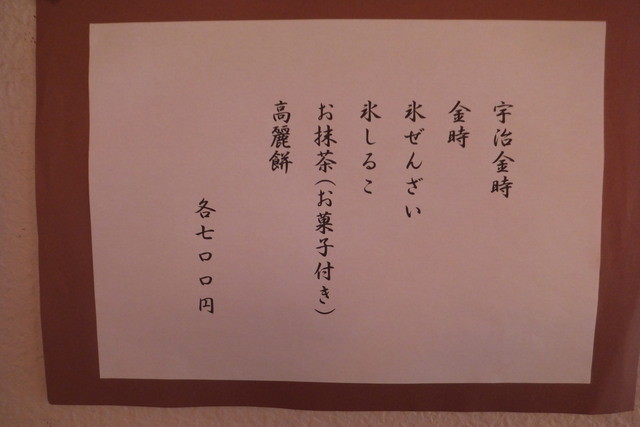 宇治金時
金時
氷ぜんざい
氷しるこ
お抹茶(お菓子付き)
高麗餅
各七〇〇円